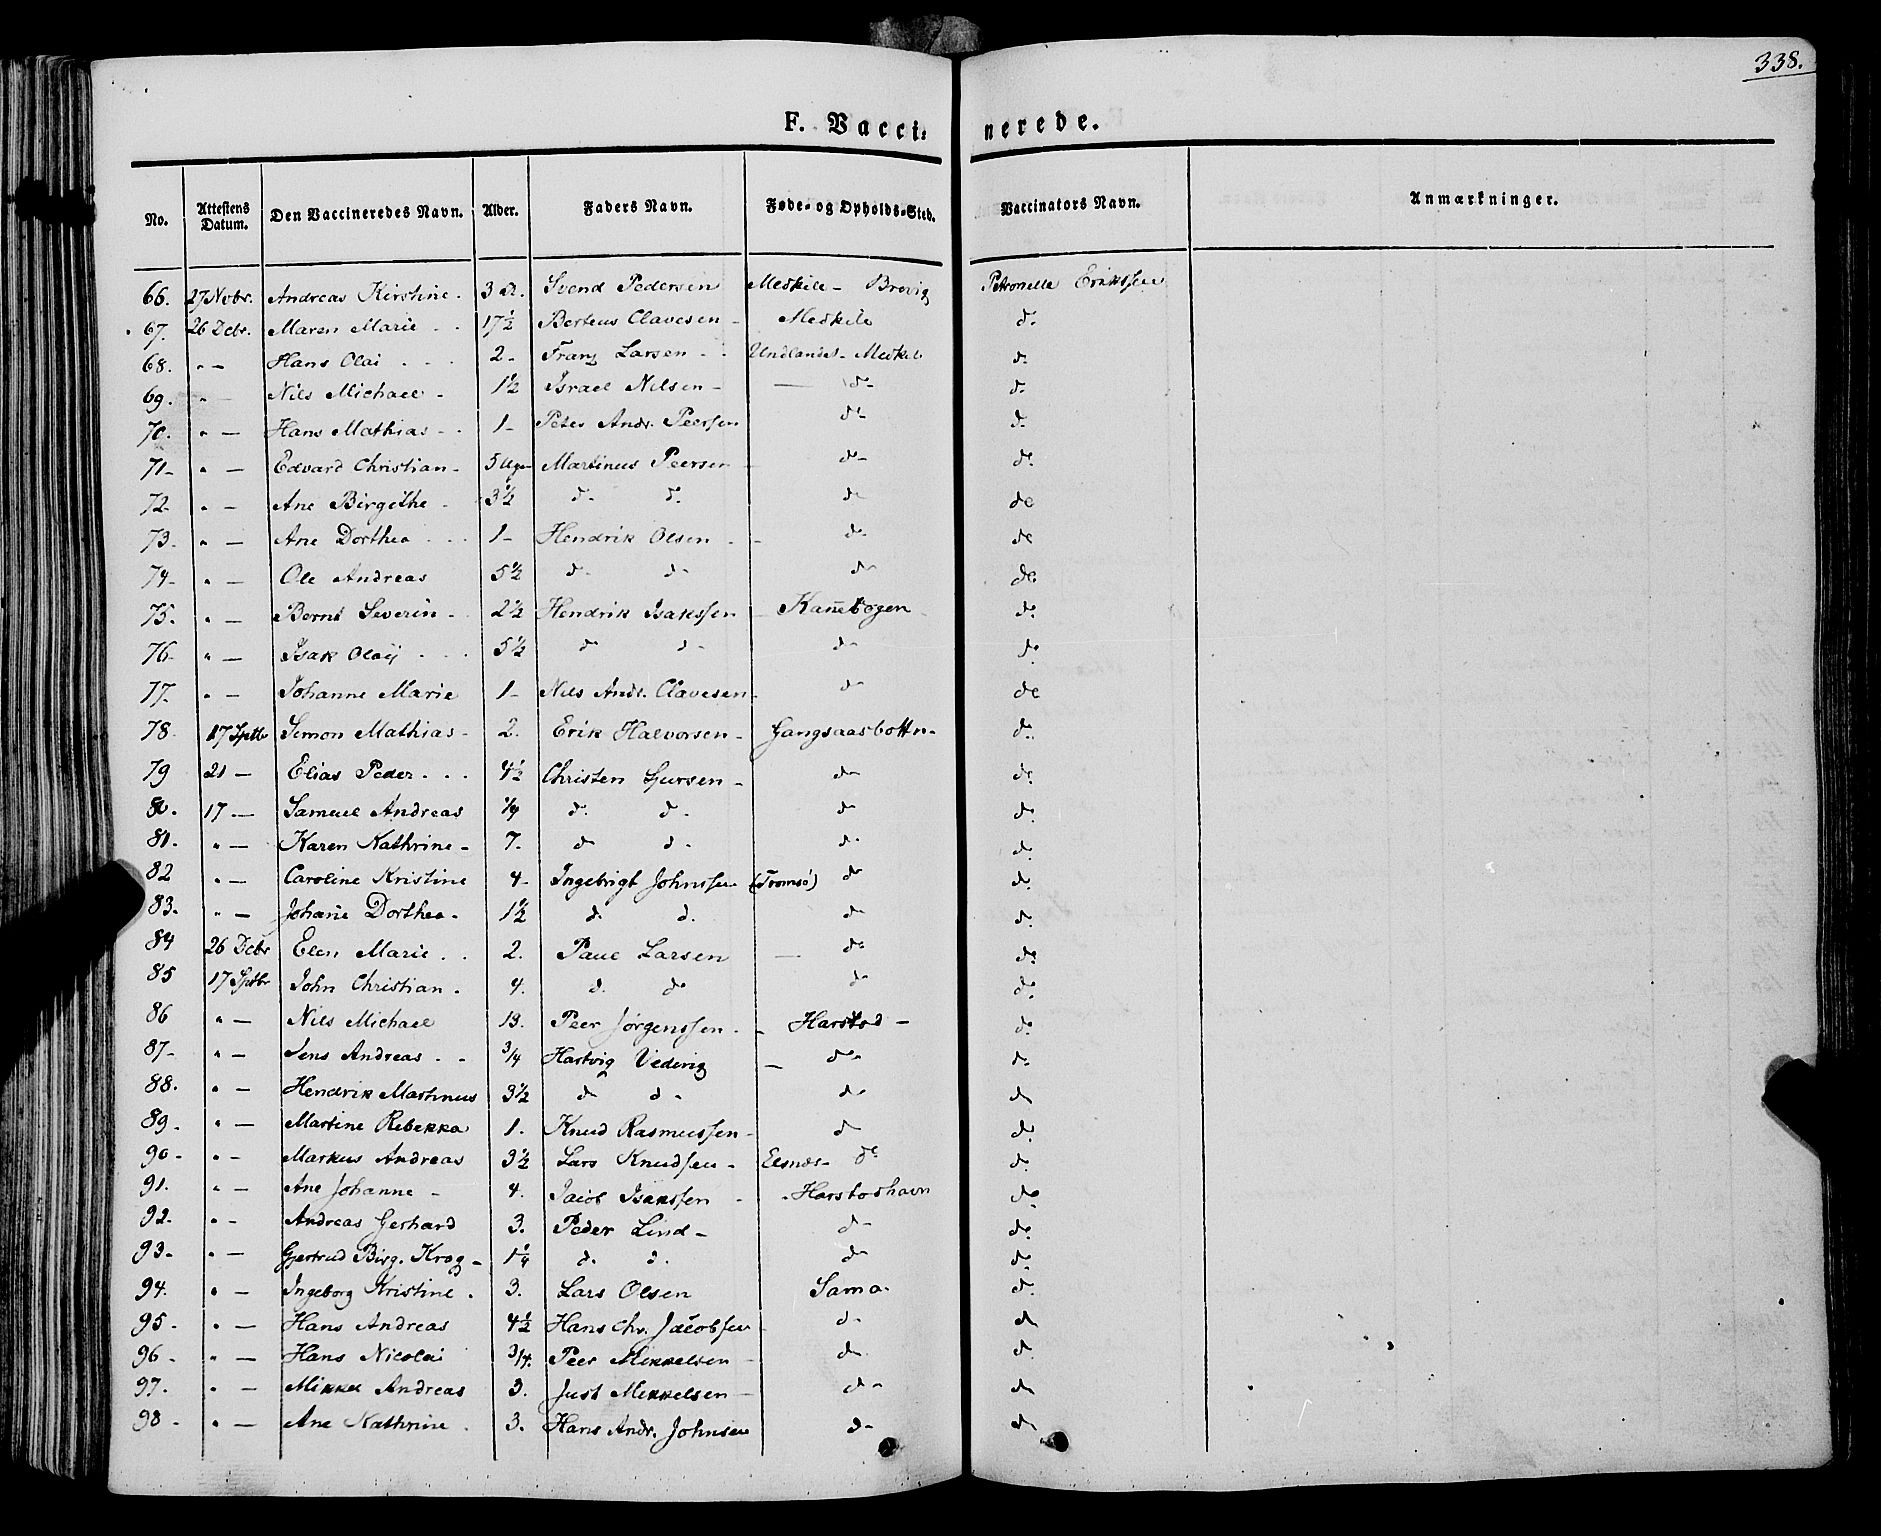 338.
F. Vacci-nerede.
No. Attestens Datum. Den Vaccineredes Navn. Alder. Faders Navn. Føde- og Opholds-Sted. Vaccinators Navn. Anmærkninger.
66. 27 Novbr. Andreas Kirstine. 3 A. Svend Pedersen Medkile - Brevig Petronelle Erikssen
67. 26 Debr. Maren Marie 17½ Berteus Clavesen - Medkile d°
68. " - Hans Olai 2 - Franz Larsen - Undlandet - Medkil d°
69. " - Nils Michael - 1½ Israel Nilsen - — d° d°
70. " - Hans Mathias - 1 - Peter Andr. Peersen d° d°
71 - " - Edvard Christian - 5 Uger Martinus Peersen d° d°
72. " - Ane Birgithe - 3½ d° d° d° d°
73. " - Ane Dorthea 1 - Hendrik Olsen - d° d°
74 - " - Ole Andreas 5½ d° d° d° d°
75. " - Bernt Severin - 2½ Hendrik Isakssen Kanebogen d°
76 - " - Isak Olaij 5½ d° d° d° d°
77. " - Johanne Marie 1 - Nils Andr. Clavesen - d° d°
78. 17 Sptbr Simon Mathias - 2. Erik Halvorsen - Gangsaasbottn - d°
79 21 - Elias Peder 4½ Christen Sjursen - d° d°
80. 17 - Samuel Andreas d° d° d° d°
81. " - Karen Kathrine - 7. d° d° d° d°
82 " - Caroline Kristine 4 - Ingebrigt Johnssen (Tromsö) d° d°
83. " - Johane Dorthea - 1½ d° d° d° d°
84 26 Debr Elen Marie 2. Paul Larsen — d° d°
85 17 Sptbr John Christian. 4. d° d° d° d°
86 " - Nils Michael 13. Peer Jørgenssen - Harstad - d°
87 - " - Jens Andreas - 3/4 Hartvig Veding - d° d°
88. " - Hendrik Martinus 3½ d° d° d° d°
89. " - Martine Rebekka 1. Knud Rasmussen - d° d°
90 - " - Markus Andreas 3½ Lars Knudsen - Elsnes - d° d°
91. " - Ane Johanne - 4. Jacob Isakssen - Harstadhavn d°
92. " - Andreas Gerhard 3. Peder Lind - d° d°
93 - " - Gjertrud Birg. Krog - 1¼ d° d° d° d°
94. " - Ingeborg Kristine. 3. Lars Olsen Sama. d°
95. " - Hans Andreas 4½ Hans Chr. Jacobsen d° d°
96 - " - Hans Nicolai 3/4. Peer Mikkelsen d° d°
97. " - Mikkel Andreas 3. Just Mikkelsen - d° d°
98 - " - Ane Kathrine. 3. Hans Andr. Johnsen d° d°